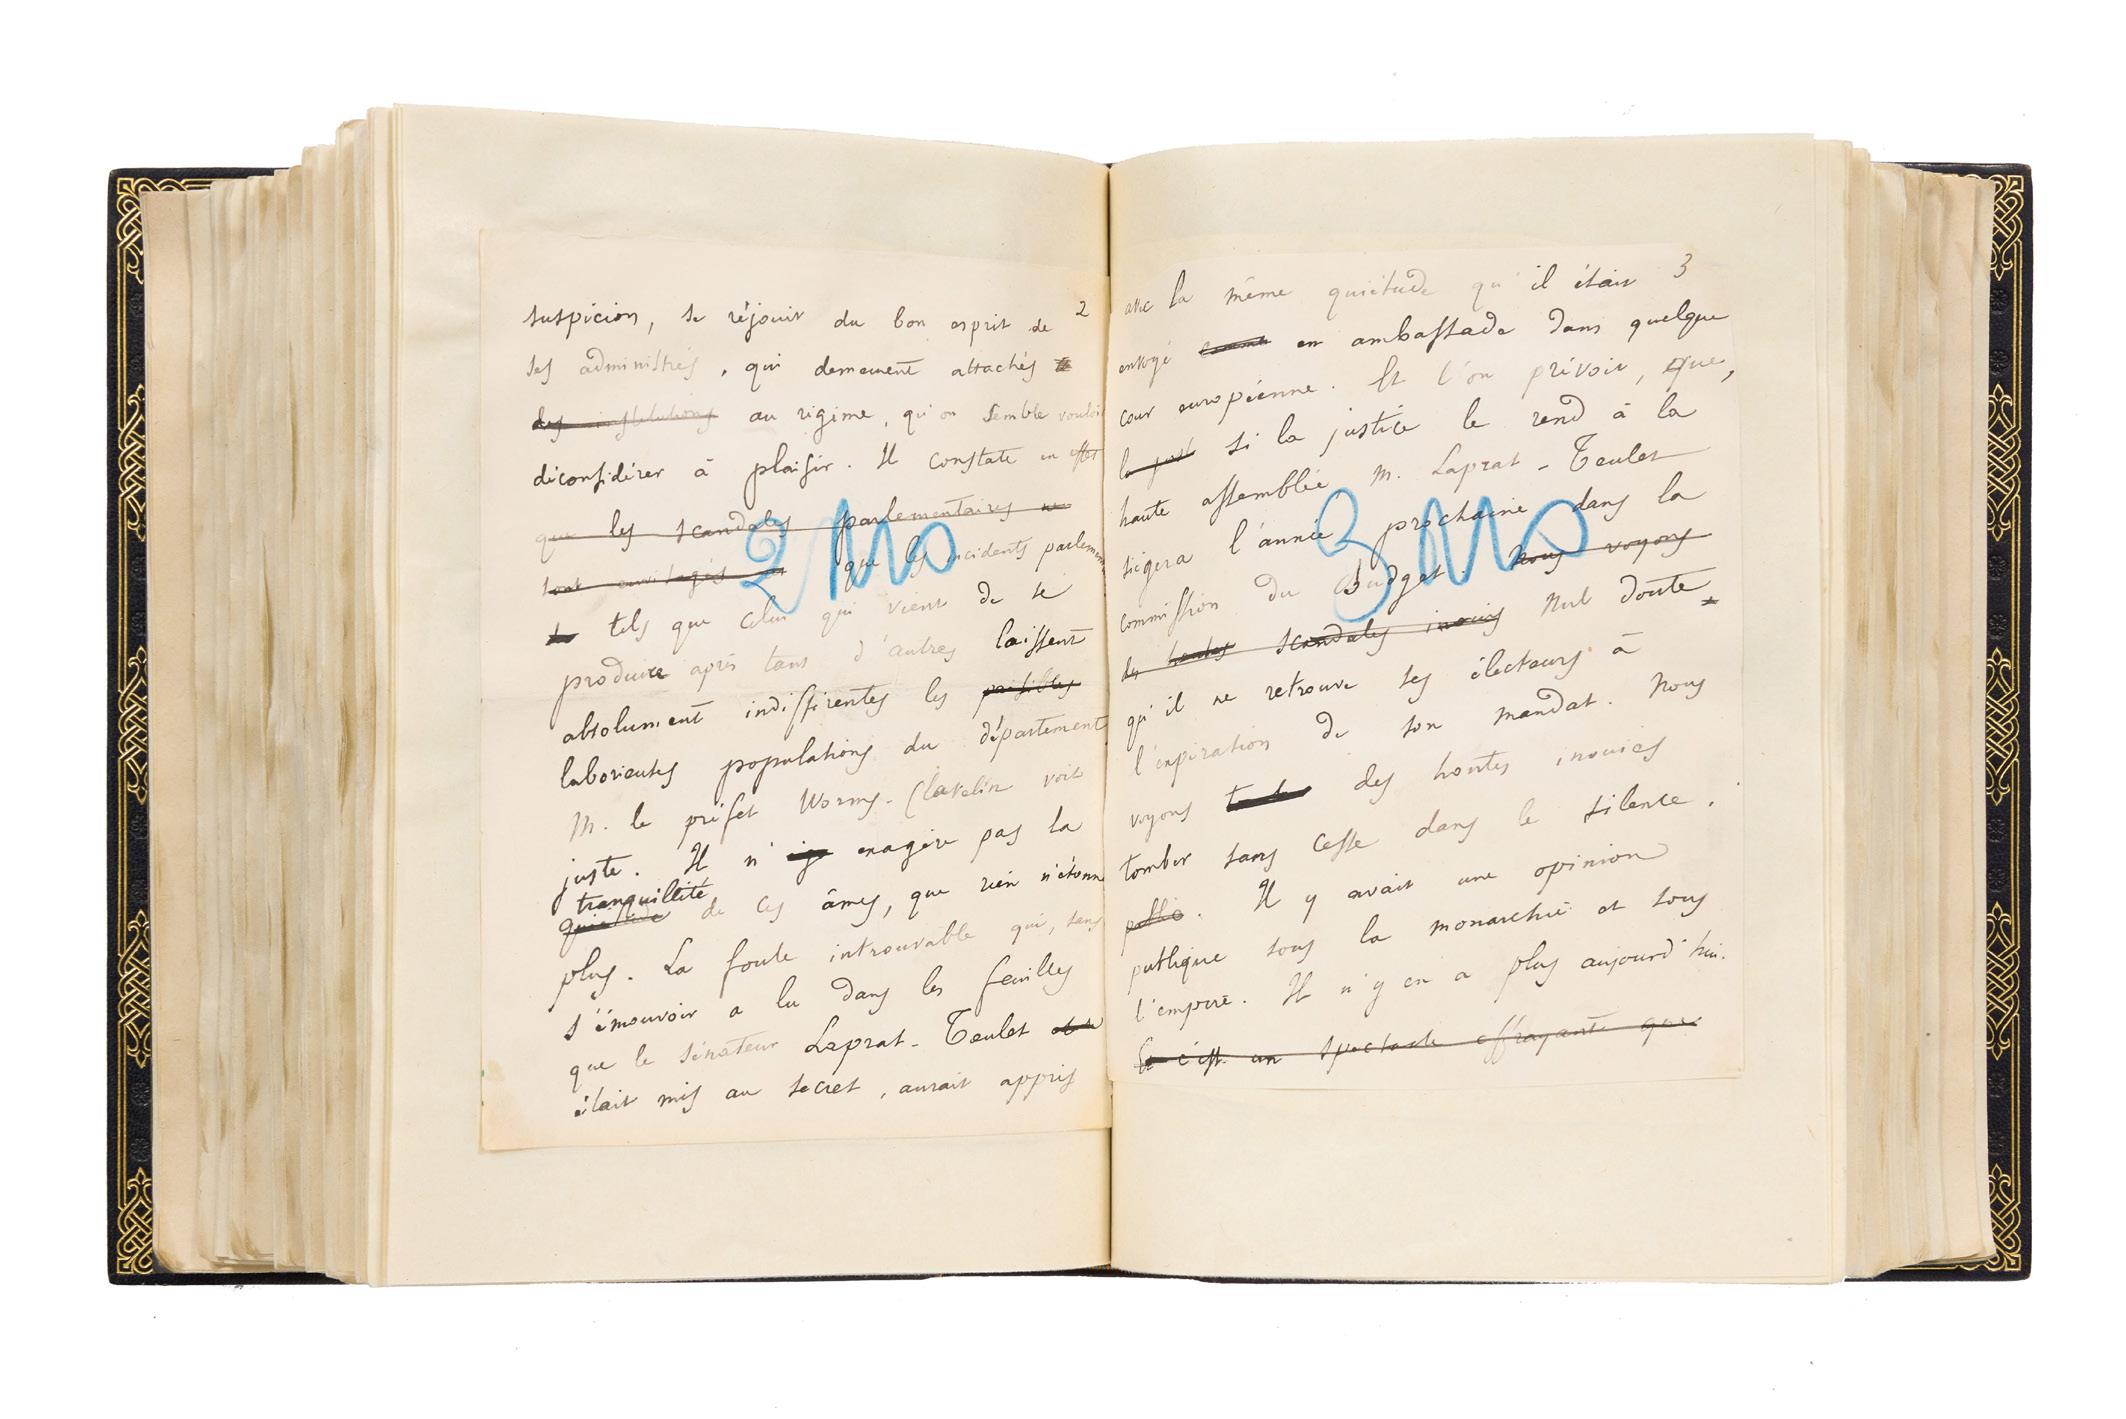 2
suspicion, se réjouir du bon esprit de
ses administrés, qui demeurent attachés
des institutions au régime, qu'on semble vouloir
déconsidérer à plaisir. Il constate en effet
que les scandales parlementaires ne
sont envisagés que les incidents parlemen
tels que celui qui vient de se
produire après tant d'autres laissent
absolument indifférentes les paisibles
laborieuses populations du département
M. le préfet Worms-Clavelin voit
juste. Il n' exagère pas la
tranquillité
quiétude de ces âmes, que rien n'étonne
plus. La foule introuvable qui, sans
s'émouvoir a lu dans les feuilles
que le sénateur Laprat-Teulet
était mis au secret, aurait appris
2 Mo
3
avec la même quiétude qu'il était
envoyé comme en ambassade dans quelque
cour européenne. Et l'on prévoit, que,
la just si la justice le rend à la
haute assemblée M. Laprat-Teulet
siégera l'année prochaine dans la
commission du Budget. Nous voyons
des hontes scandales inouis Nul doute
qu'il ne retrouve ses électeurs à
l'expiration de son mandat. Nous
voyons des hontes inouies
tomber sans cesse dans le silence.
Il y avait une opinion
publique sous la monarchie et sous
l'empire. Il n'y en a plus aujourd'hui.
c'est un spectacle effrayant que
3 Mo